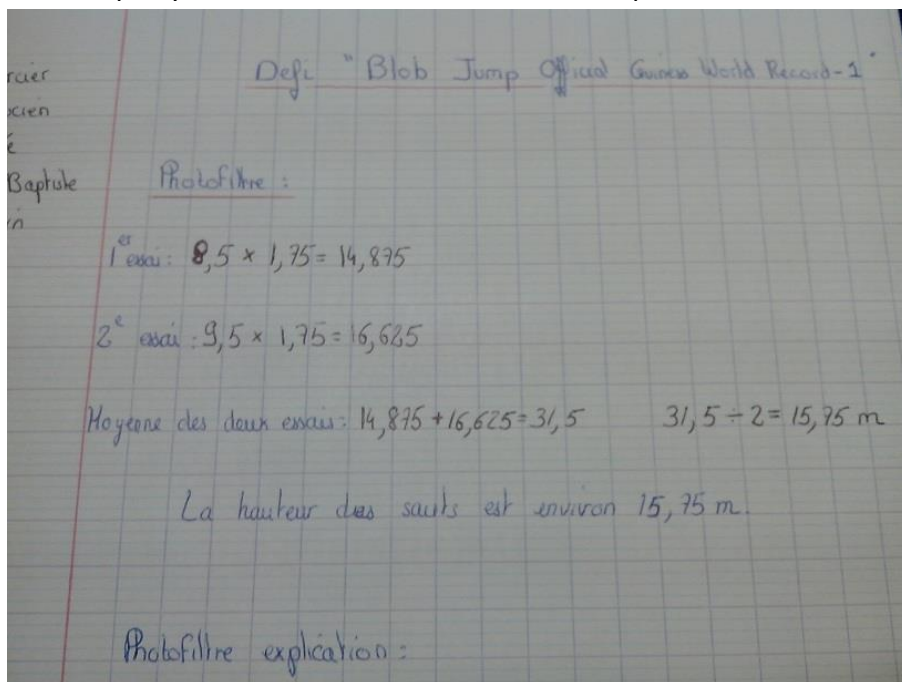 Defi "Blob Jump Official Guiness World Record-1"
rcier
cien
é
Baptiste
in
Photofiltre :
1er essai : 8,5 × 1,75 = 14,875
2e essai : 9,5 × 1,75 = 16,625
Moyenne des deux essais : 14,875 + 16,625 = 31,5 31,5 ÷ 2 = 15,75 m
La hauteur des sauts est environ 15,75 m.
Photofiltre explication :